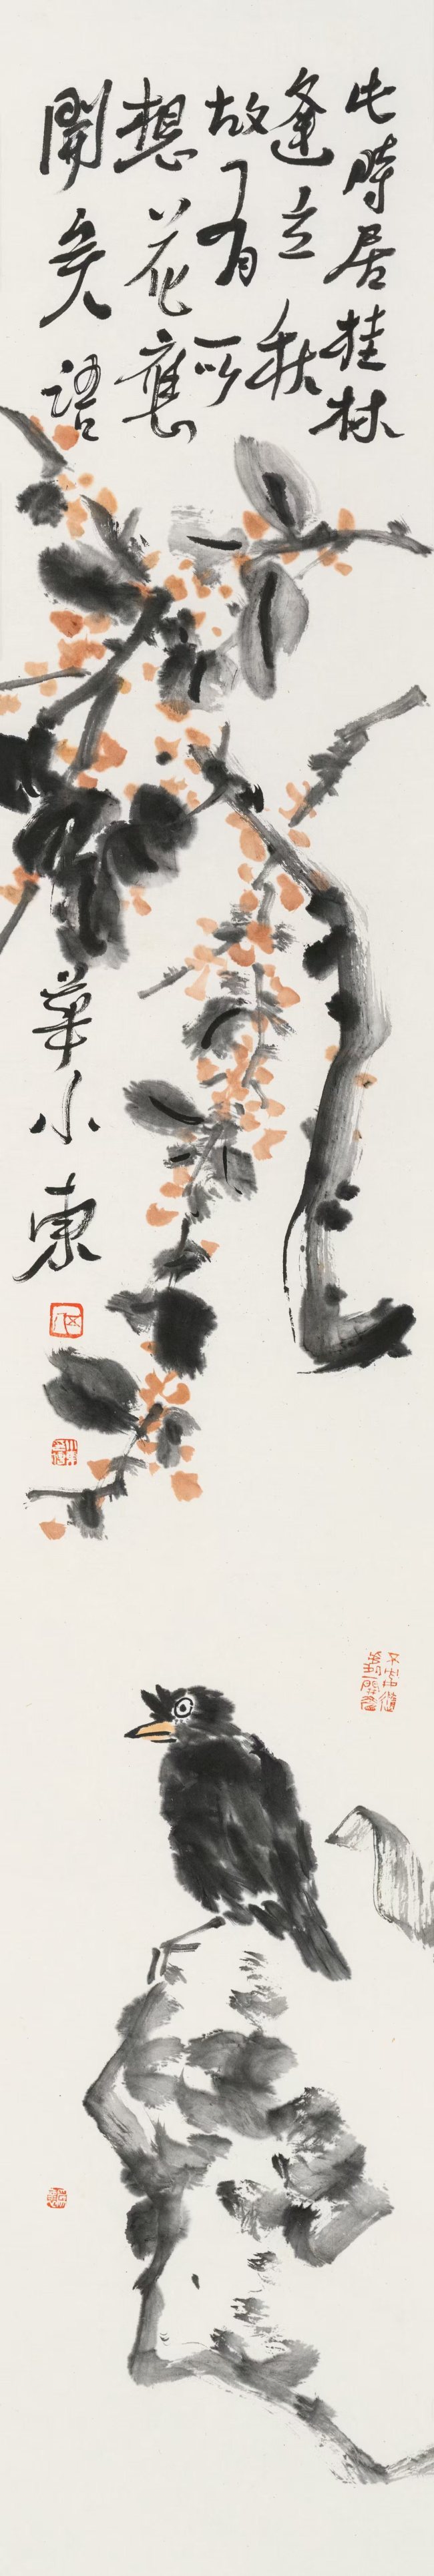 此時居桂林
逢立秋
故有所
想花應
開矣語
華小東